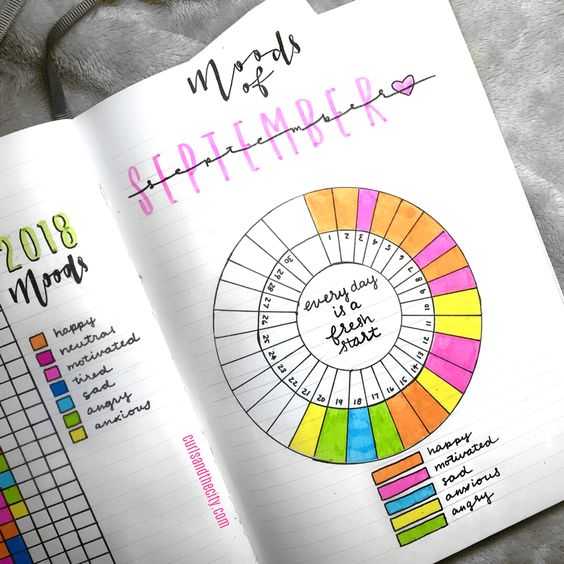 2018
Moods
happy
neutral
motivated
tired
sad
angry
anxious
Moods
of
SEPTEMBER
september
1
2
3
4
5
6
7
8
9
10
11
12
13
14
15
16
17
18
19
20
21
22
23
24
25
26
27
28
29
30
every day
is a
fresh
start
happy
motivated
sad
anxious
angry
curlsandthecity.com